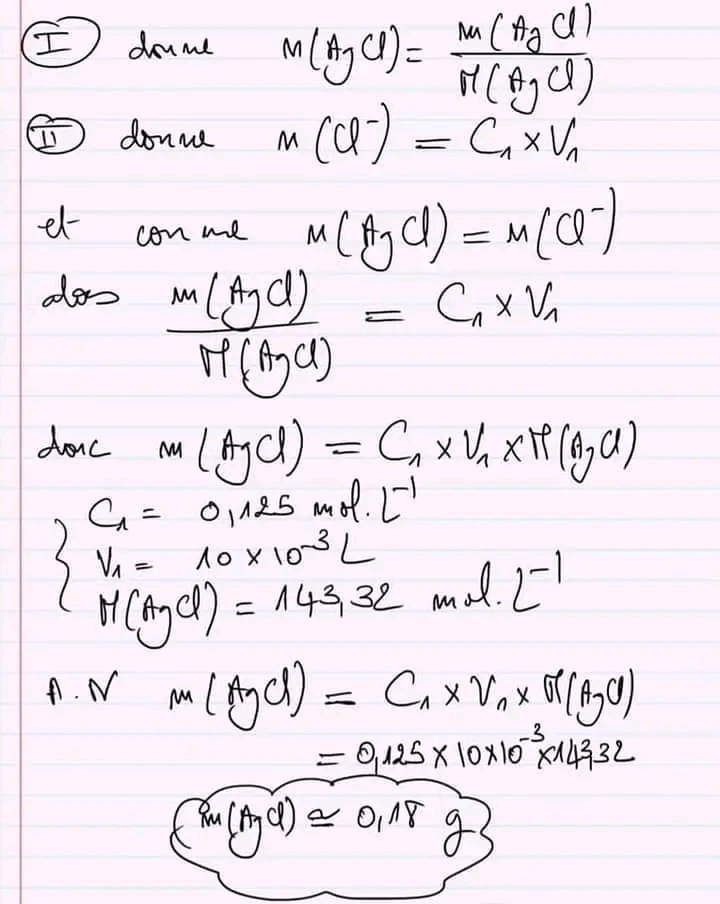 I donne n(AgCl) = m(AgCl) / M(AgCl)
II donne n(Cl⁻) = C₁ × V₁
et comme n(AgCl) = n(Cl⁻)
alors m(AgCl) / M(AgCl) = C₁ × V₁
donc m(AgCl) = C₁ × V₁ × M(AgCl)
C₁ = 0,125 mol.L⁻¹
V₁ = 10 × 10⁻³ L
M(AgCl) = 143,32 mol.L⁻¹
A.N m(AgCl) = C₁ × V₁ × M(AgCl)
= 0,125 × 10 × 10⁻³ × 143,32
m(AgCl) ≃ 0,18 g